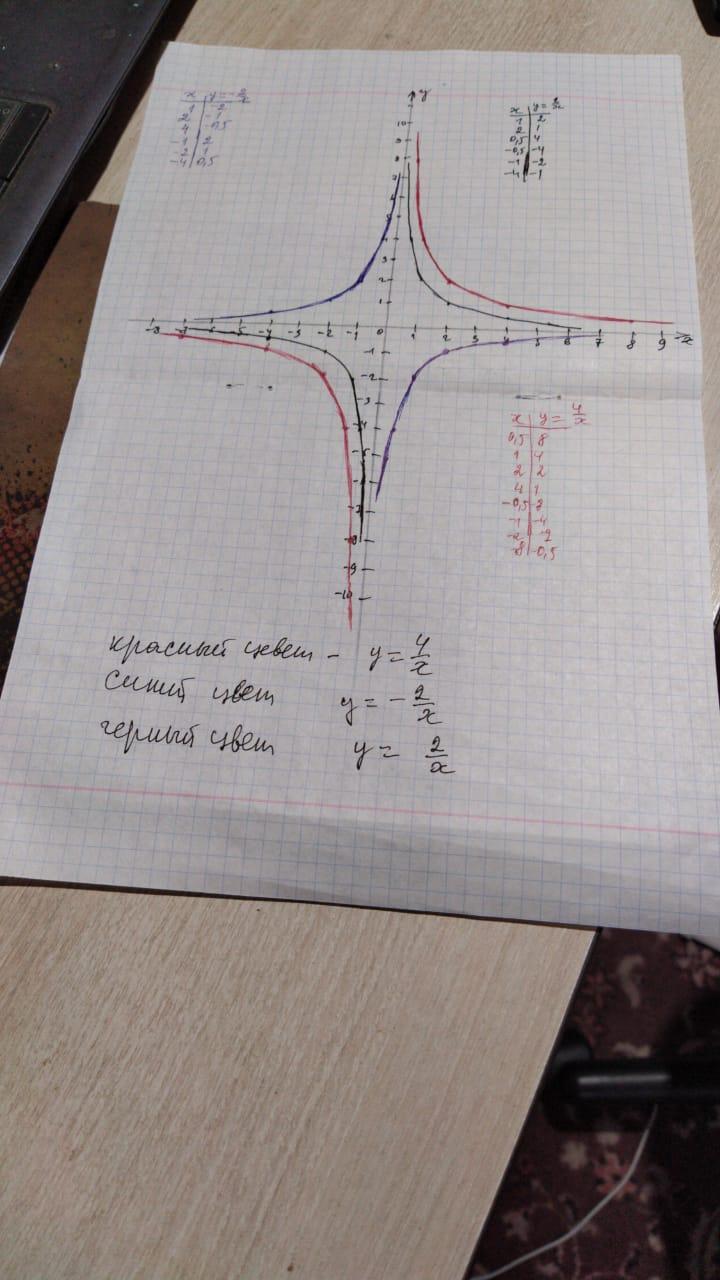 x | y = -2/x
1 | -2
2 | -1
4 | -0,5
-1 | 2
-2 | 1
-4 | 0,5
x | y = 2/x
1 | 2
2 | 1
0,5 | 4
-0,5 | -4
-1 | -2
-4 | -1
y
10
9
8
7
6
5
4
3
2
1
-8 -7 -6 -5 -4 -3 -2 -1 0 1 2 3 4 5 6 7 8 9 x
-1
-2
-3
-4
-5
-8
-9
-10
x | y = 4/x
0,5 | 8
1 | 4
2 | 2
4 | 1
-0,5 | -8
-1 | -4
-2 | -2
-8 | -0,5
красный цвет - y = 4/x
синий цвет y = - 2/x
черный цвет y = 2/x